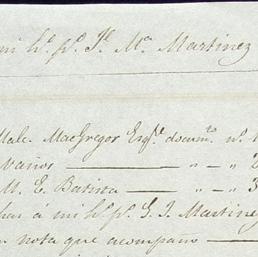 mi hº pº Jº Mª Martinez
Malc. MacGregor Esqre docum.to nº 1
Varios — " — " 2
M. E. Batista — " — " 3
á mi hº pº G. J. Martinez
nota que acompaño —